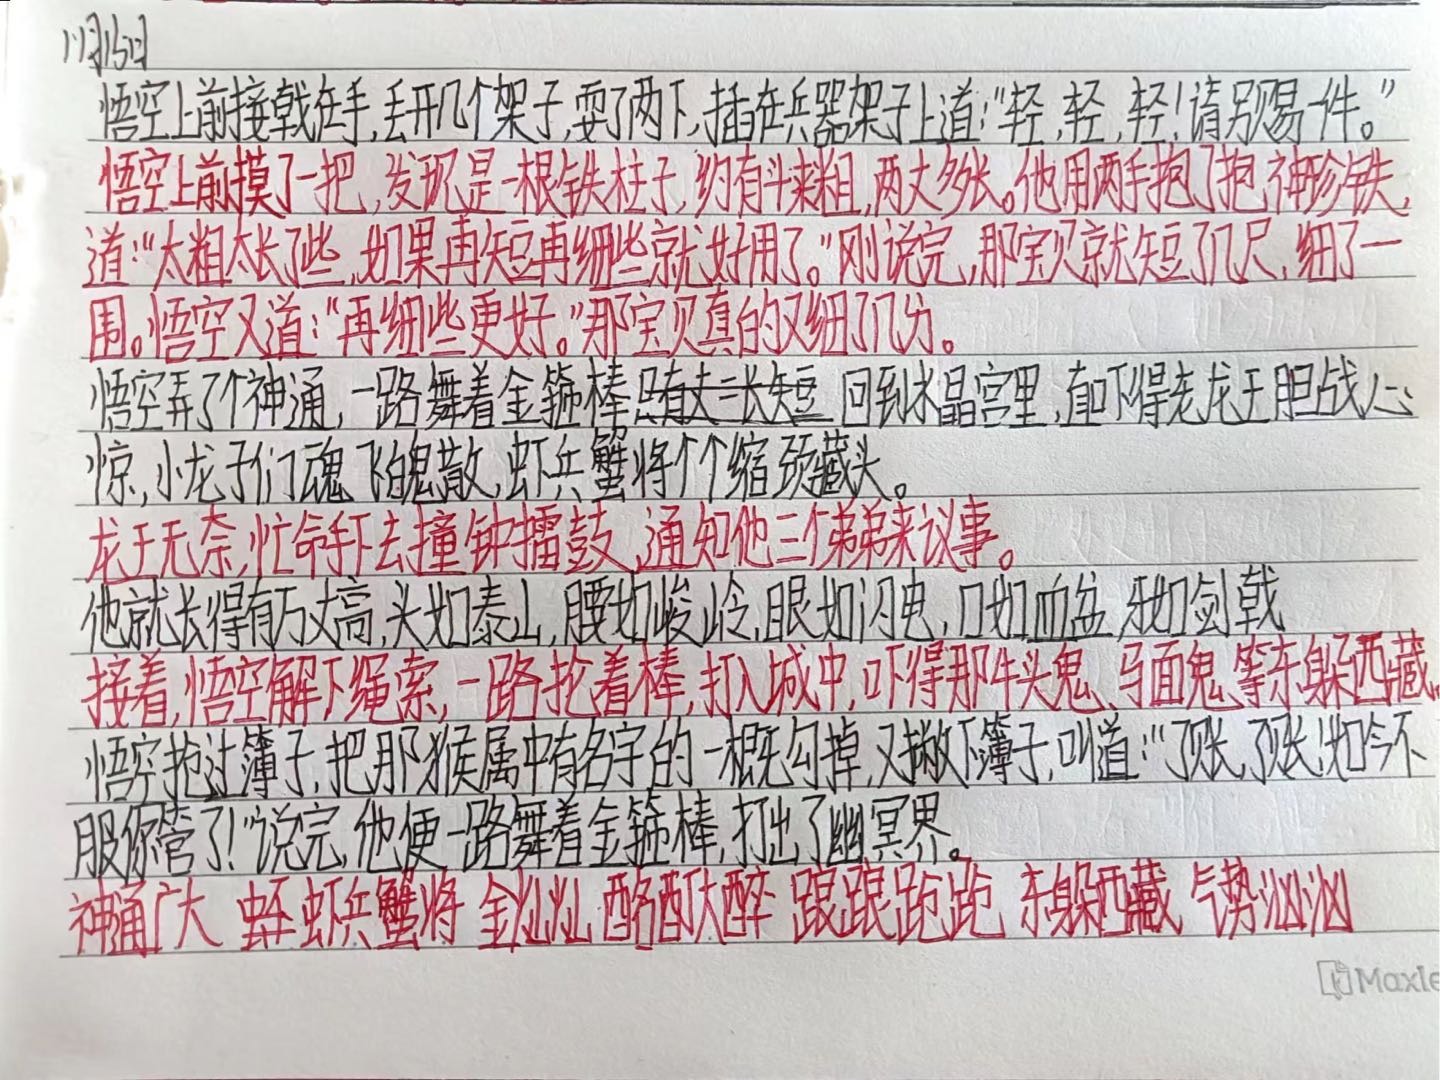 11月15日
悟空上前接戟在手,丢开几个架子,耍了两下,插在兵器架子上道:“轻,轻,轻!请另赐一件。”
悟空上前摸了一把,发现是一根铁柱子,约有斗来粗,两丈多长。他用两手抱了抱神珍铁,
道:“太粗太长了些,如果再短再细些就好用了。”刚说完,那宝贝就短了几尺,细了一
围。悟空又道:“再细些更好。”那宝贝真的又细了几分。
悟空弄了个神通,一路舞着金箍棒 回到水晶宫里,直吓得老龙王胆战心
惊,小龙子们魂飞魄散,虾兵蟹将个个缩颈藏头。
龙王无奈,忙命手下去撞钟擂鼓,通知他三个弟弟来议事。
他就长得有万丈高,头如泰山,腰如峻岭,眼如闪电,口如血盆,牙如剑戟
接着,悟空解下绳索,一路抡着棒,打入城中,吓得那牛头鬼、马面鬼等东躲西藏。
悟空抢过簿子,把那猴属中有名字的一概勾掉,又撇下簿子,叫道:“了账,了账!如今不
服你管了!”说完,他便一路舞着金箍棒,打出了幽冥界。
神通广大 虾兵蟹将 金灿灿 酩酊大醉 踉踉跄跄 东躲西藏 气势汹汹
Maxle